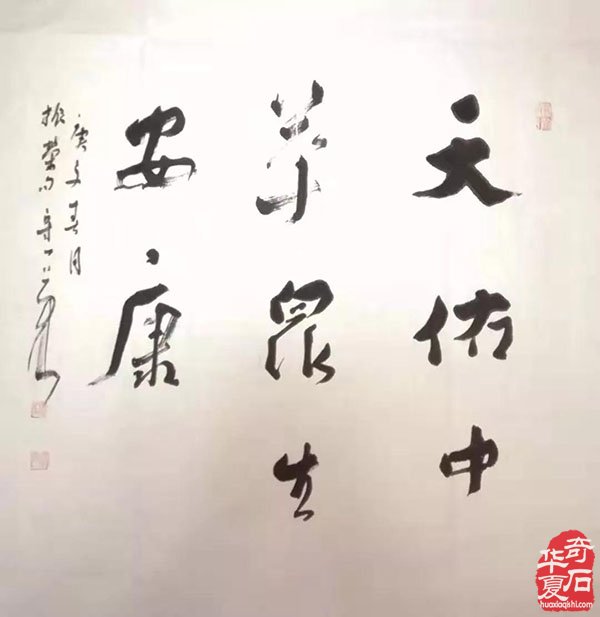 天佑中
華眾生
安康
庚子春月
华夏
奇石
huaxiaqishi.com